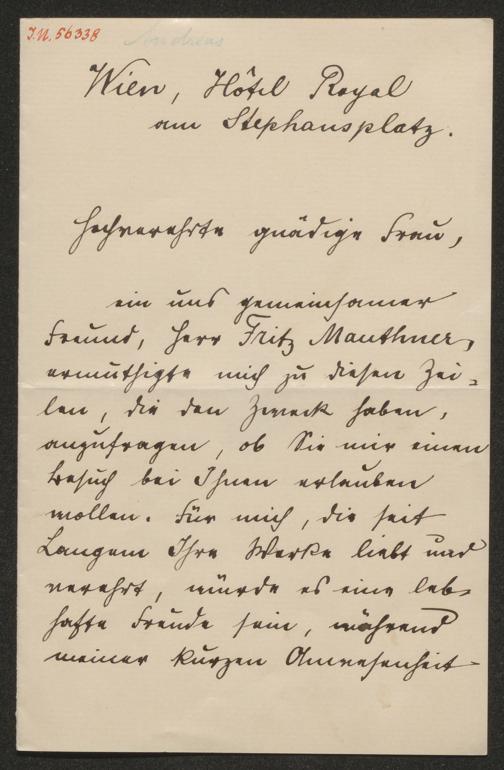 I.N. 56338 Andreas
Wien, Hôtel Royal
am Stephansplatz.
Hochverehrte gnädige Frau,
ein uns gemeinsamer
Freund, Herr Fritz Mauthner,
ermuthigte mich zu diesen Zei-
len, die den Zweck haben,
anzufragen, ob Sie mir einen
Besuch bei Ihnen erlauben
wollen. Für mich, die seit
Langem Ihre Werke liebt und
verehrt, würde es eine leb-
hafte Freude sein, während
meiner kurzen Anwesenheit